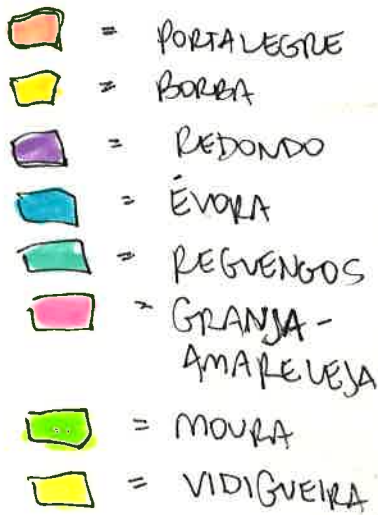 = PORTALEGRE
= BORBA
= REDONDO
= ÉVORA
= REGUENGOS
= GRANJA-
AMARELEJA
= MOURA
= VIDIGUEIRA